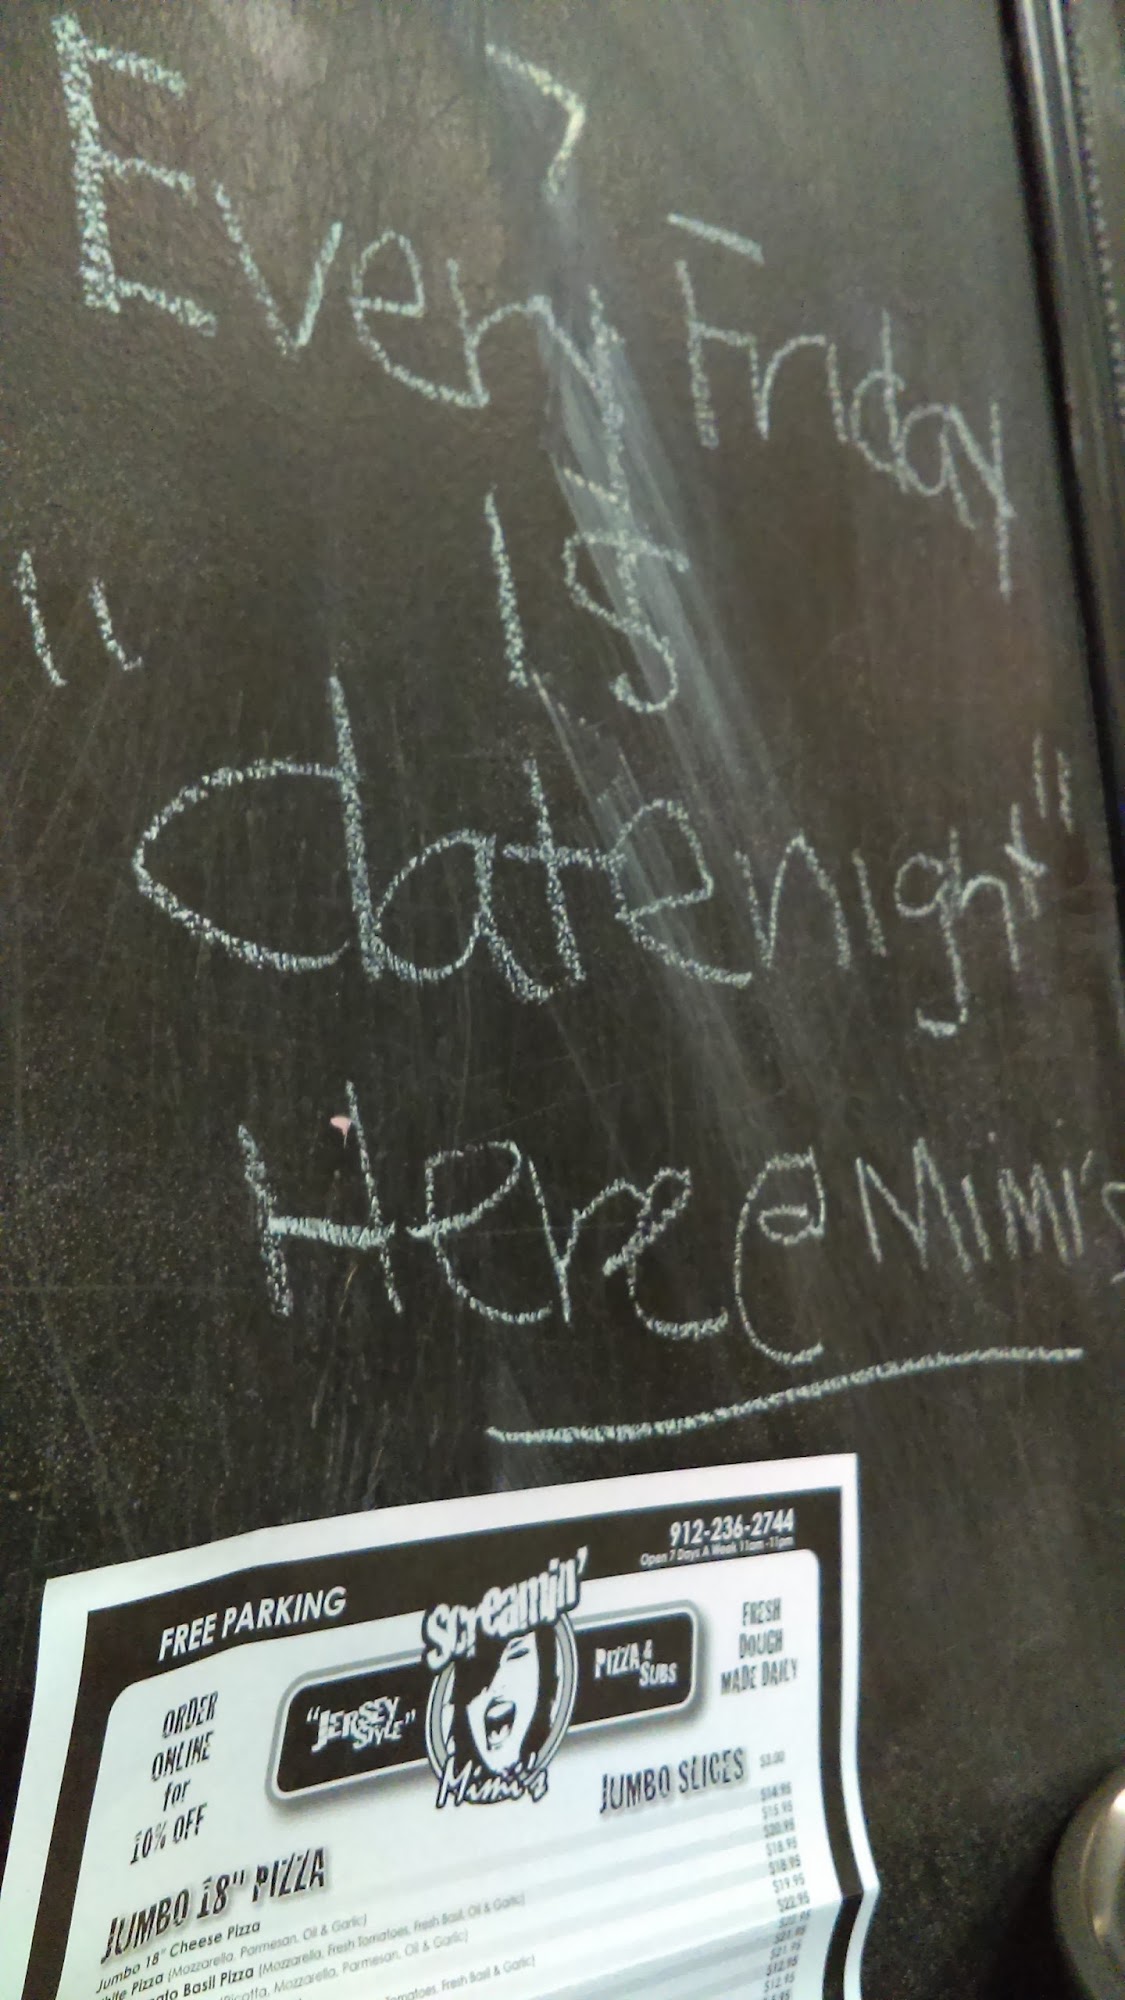 Every Friday
Is
"date night"
Here @ Mimi's
912-236-2744
Open 7 Days A Week 11am - 11pm
FREE PARKING
Screamin'
"JERSEY STYLE"
PIZZA & SUBS
Mimi's
FRESH
DOUGH
MADE DAILY
ORDER
ONLINE
for
10% OFF
JUMBO SLICES $3.00
JUMBO 18" PIZZA
Jumbo 18" Cheese Pizza $14.95
Pizza (Mozzarella, Parmesan, Oil & Garlic) $15.95
Basil Pizza (Mozzarella, Fresh Tomatoes, Fresh Basil, Oil & Garlic) $20.95
Mozzarella, Parmesan, Oil & Garlic) $18.95
Fresh Basil & Garlic) $18.95
$19.95
$22.95